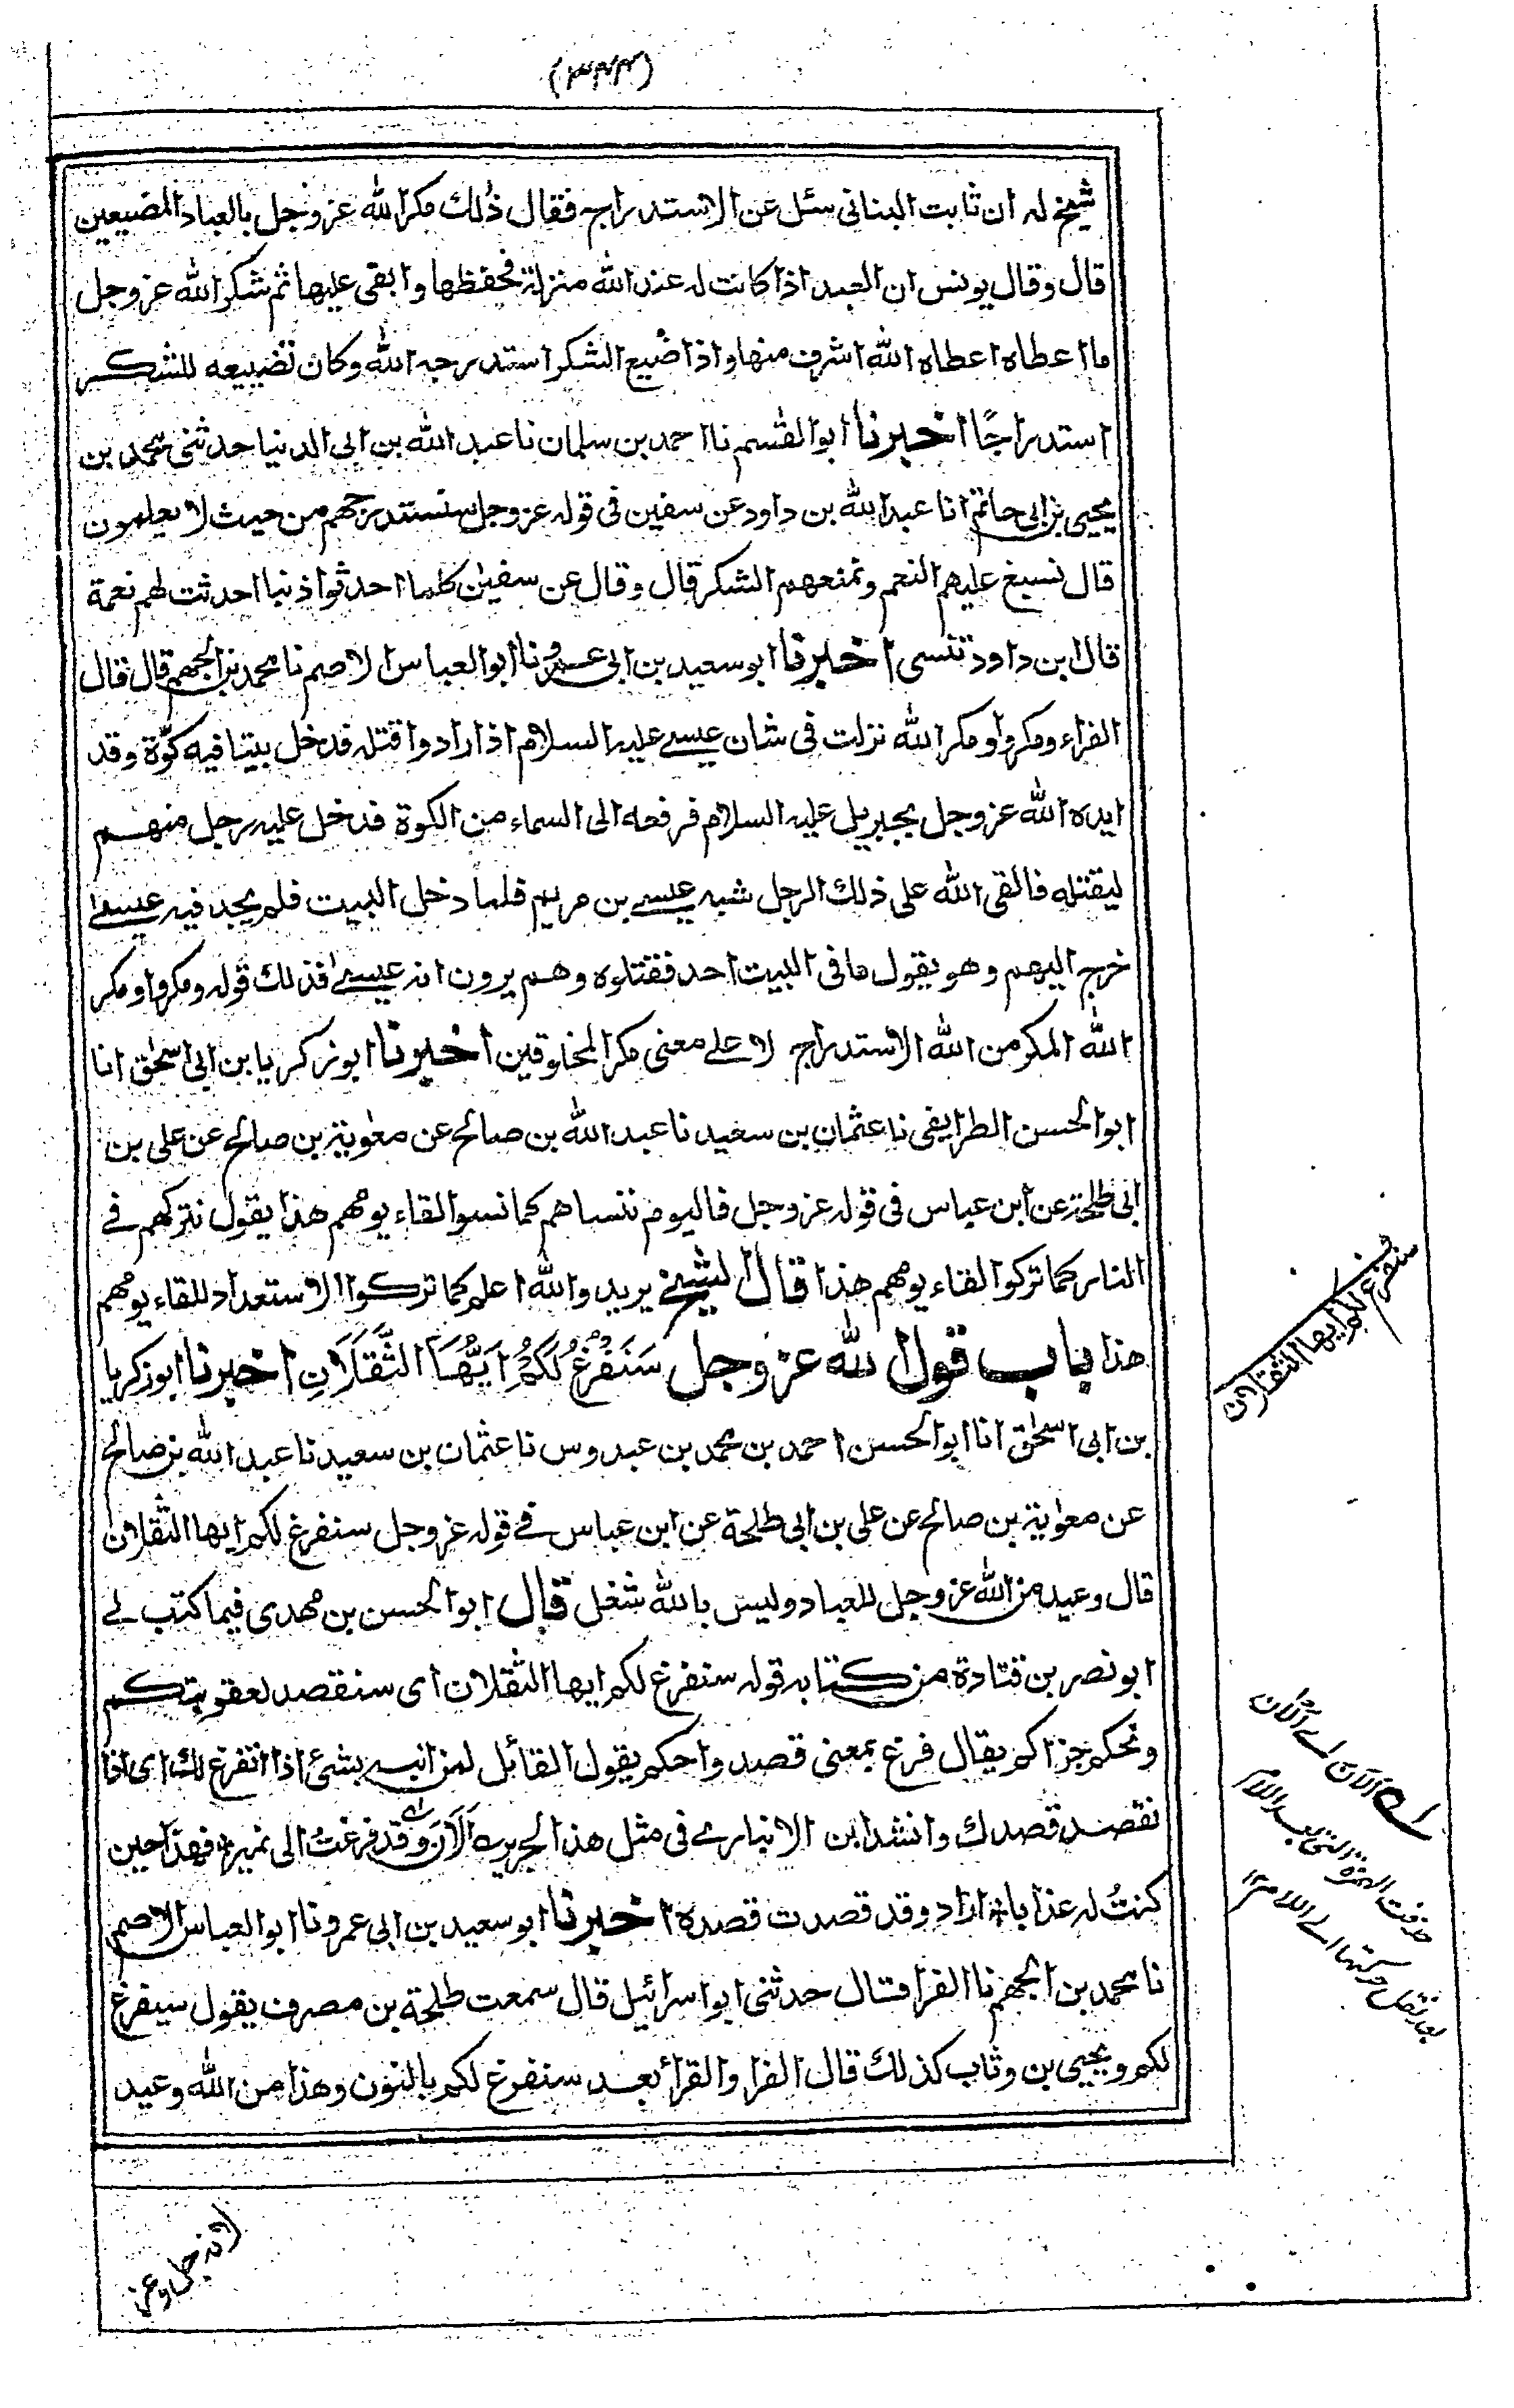 شيخ له ان ثابت البنانى سئل عن الاستدراج فقال ذلك مكر الله عز وجل بالعباد المضيعين
قال وقال يونس ان العبد اذا كانت له عند الله منزلة فحفظها وابقى عليها ثم شكر الله عز وجل
ما اعطاه اعطاه الله اشرف منها واذا ضيع الشكر استدرجه الله وكان تضييعه للشكر
استدراجًا اخبرنا ابو القٰسم نا احمد بن سلمان نا عبد الله بن ابى الدنيا حدثنى محمد بن
يحيى بن ابى حاتم انا عبد الله بن داود عن سفين فى قوله عز وجل سنستدرجهم من حيث لا يعلمون
قال نسبغ عليهم النعم ونمنعهم الشكر قال وقال عن سفيٰن كلما احدثوا ذنبا احدثت لهم نعمة
قال ابن داود تنسى اخبرنا ابو سعيد بن ابى عمرو نا ابو العباس الاصم نا محمد بن الجهم قال قال
الفراء ومكروا ومكر الله نزلت فى شان عيسے عليه السلام اذ ارادوا قتله فدخل بيتا فيه كوّة وقد
ايده الله عز وجل بجبريل عليه السلام فرفعه الى السماء من الكوة فدخل عليه رجل منهم
ليقتله فالقى الله على ذلك الرجل شبه عيسے بن مريم فلما دخل البيت فلم يجد فيه عيسےٰ
خرج اليهم وهو يقول ما فى البيت احد فقتلوه وهم يرون انه عيسےٰ فذلك قوله ومكروا ومكر
الله المكر من الله الاستدراج لا علے معنى مكر المخلوقين اخبرنا ابو زكريا بن ابى اسحٰق انا
ابو الحسن الطرايفى نا عثمان بن سعيد نا عبد الله بن صالح عن معٰوية بن صالح عن على بن
ابى طلحة عن ابن عباس فى قوله عز وجل فاليوم ننساهم كما نسوا لقاء يومهم هذا يقول نتركهم فے
النار كما تركوا لقاء يومهم هذا قال الشيخ يريد والله اعلم كما تركوا الاستعداد للقاء يومهم
هذا باب قول الله عز وجل سَنَفْرُغُ لَكُمْ اَيُّهَا الثَّقَلَانِ اخبرنا ابو زكريا
بن ابى اسحٰق انا ابو الحسن احمد بن محمد بن عبدوس نا عثمان بن سعيد نا عبد الله بن صالح
عن معٰوية بن صالح عن على بن ابى طلحة عن ابن عباس فے قوله عز وجل سنفرغ لكم ايها الثقلان
قال وعيد من الله عز وجل للعباد وليس بالله شغل قال ابو الحسن بن مهدى فيما كتب لے
ابو نصر بن قتادة من كتابه قوله سنفرغ لكم ايها الثقلان اى سنقصد لعقوبتكم
ونحكم جزاكم يقال فرغ بمعنى قصد واحكم يقول القائل لمن انبه بشئ اذا اتفرغ لك اى اذا
نقصد قصدك وانشد ابن الانبارے فى مثل هذا لجرير اَلَانَ وَقد فرغتُ الى نمير فهذا حين
كنتُ له عذابا اراد وقد قصدت قصده اخبرنا ابو سعيد بن ابى عمرو نا ابو العباس الاصم
نا محمد بن الجهم نا الفرا قال حدثنى ابو اسرائيل قال سمعت طلحة بن مصرف يقول سيفرغ
لكم ويحيى بن وثاب كذلك قال الفرا والقرأ بعد سنفرغ لكم بالنون وهذا من الله وعيد
سنفرغ لكم ايها الثقلان
الآن اے الآن
حذفت الهمزة التى بعد اللام
بعد نقل حركتها اے اللام ١٢
لانه جل وعز